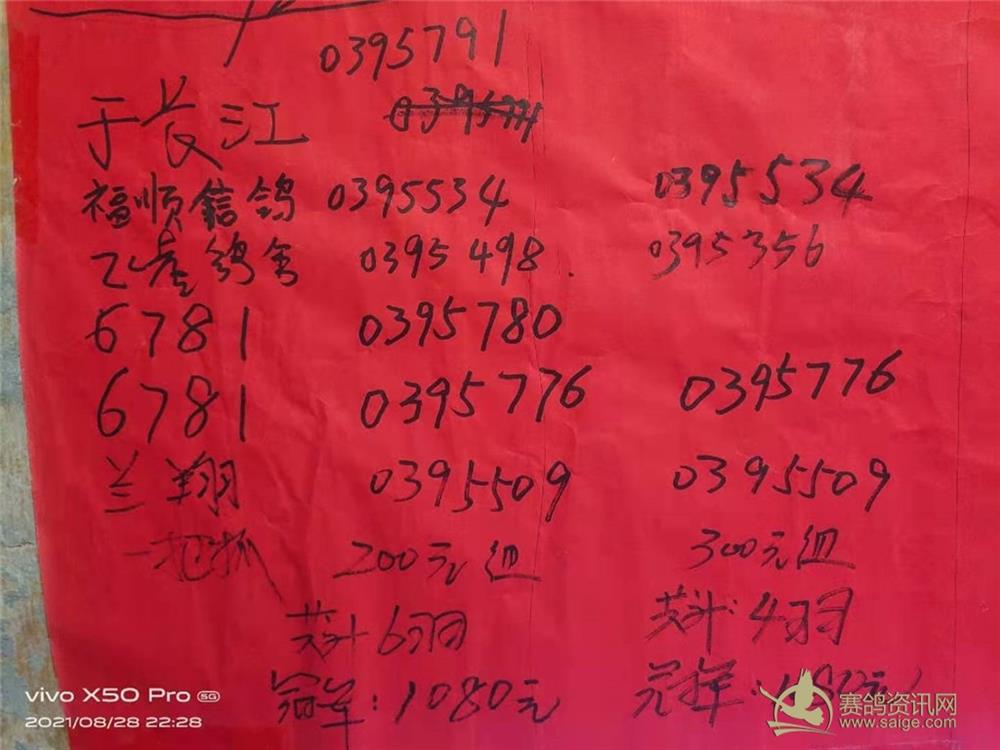 0395791
于长江
福顺信鸽 0395534 0395534
鸽舍 0395498 0395356
6781 0395780
6781 0395776 0395776
兰翔 0395509 0395509
一把抓 200元组 300元组
共计6羽 共计:4羽
冠军:1080元 冠军:1080元
vivo X50 Pro 5G
2021/08/28 22:28
赛鸽资讯网
www.saige.com